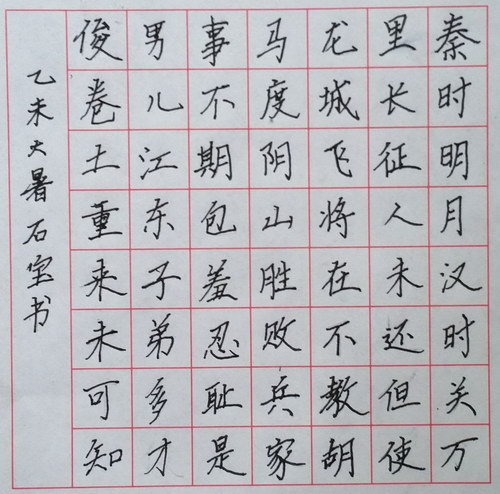 秦时明月汉时关万
里长征人未还但使
龙城飞将在不教胡
马度阴山胜败兵家
事不期包羞忍耻是
男儿江东子弟多才
俊卷土重来未可知
乙未大暑石宝书